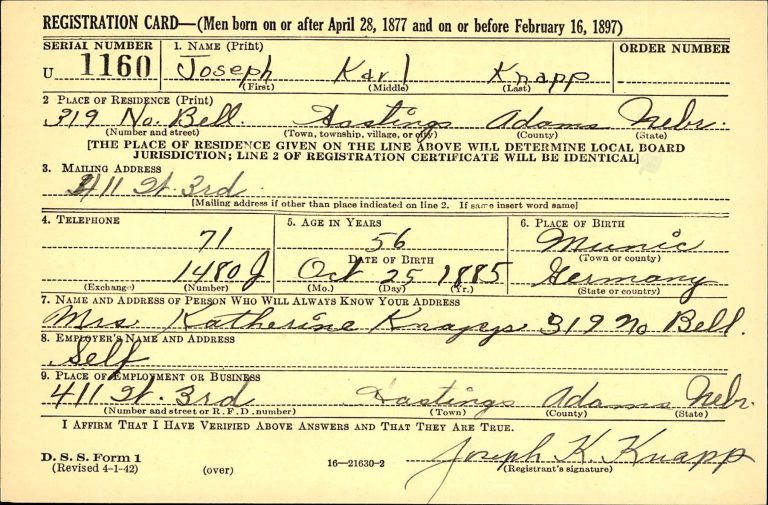 REGISTRATION CARD—(Men born on or after April 28, 1877 and on or before February 16, 1897)
SERIAL NUMBER 1. NAME (Print) ORDER NUMBER
U 1160 Joseph Karl Knapp
(First) (Middle) (Last)
2 PLACE OF RESIDENCE (Print)
319 No. Bell. Hastings Adams Nebr.
(Number and street) (Town, township, village, or city) (County) (State)
[THE PLACE OF RESIDENCE GIVEN ON THE LINE ABOVE WILL DETERMINE LOCAL BOARD
JURISDICTION; LINE 2 OF REGISTRATION CERTIFICATE WILL BE IDENTICAL]
3. MAILING ADDRESS
411 St. 3rd
[Mailing address if other than place indicated on line 2. If same insert word same]
4. TELEPHONE 5. AGE IN YEARS 6. PLACE OF BIRTH
71 56 Munic
DATE OF BIRTH (Town or county)
1480J Oct 25 1885 Germany
(Exchange) (Number) (Mo.) (Day) (Yr.) (State or country)
7. NAME AND ADDRESS OF PERSON WHO WILL ALWAYS KNOW YOUR ADDRESS
Mrs Katherine Knapp 319 No Bell.
8. EMPLOYER'S NAME AND ADDRESS
Self
9. PLACE OF EMPLOYMENT OR BUSINESS
411 St. 3rd Hastings Adams Nebr.
(Number and street or R. F. D. number) (Town) (County) (State)
I AFFIRM THAT I HAVE VERIFIED ABOVE ANSWERS AND THAT THEY ARE TRUE.
Joseph K. Knapp
D. S. S. Form 1
(Revised 4-1-42) (over) 16—21630-2 (Registrant's signature)